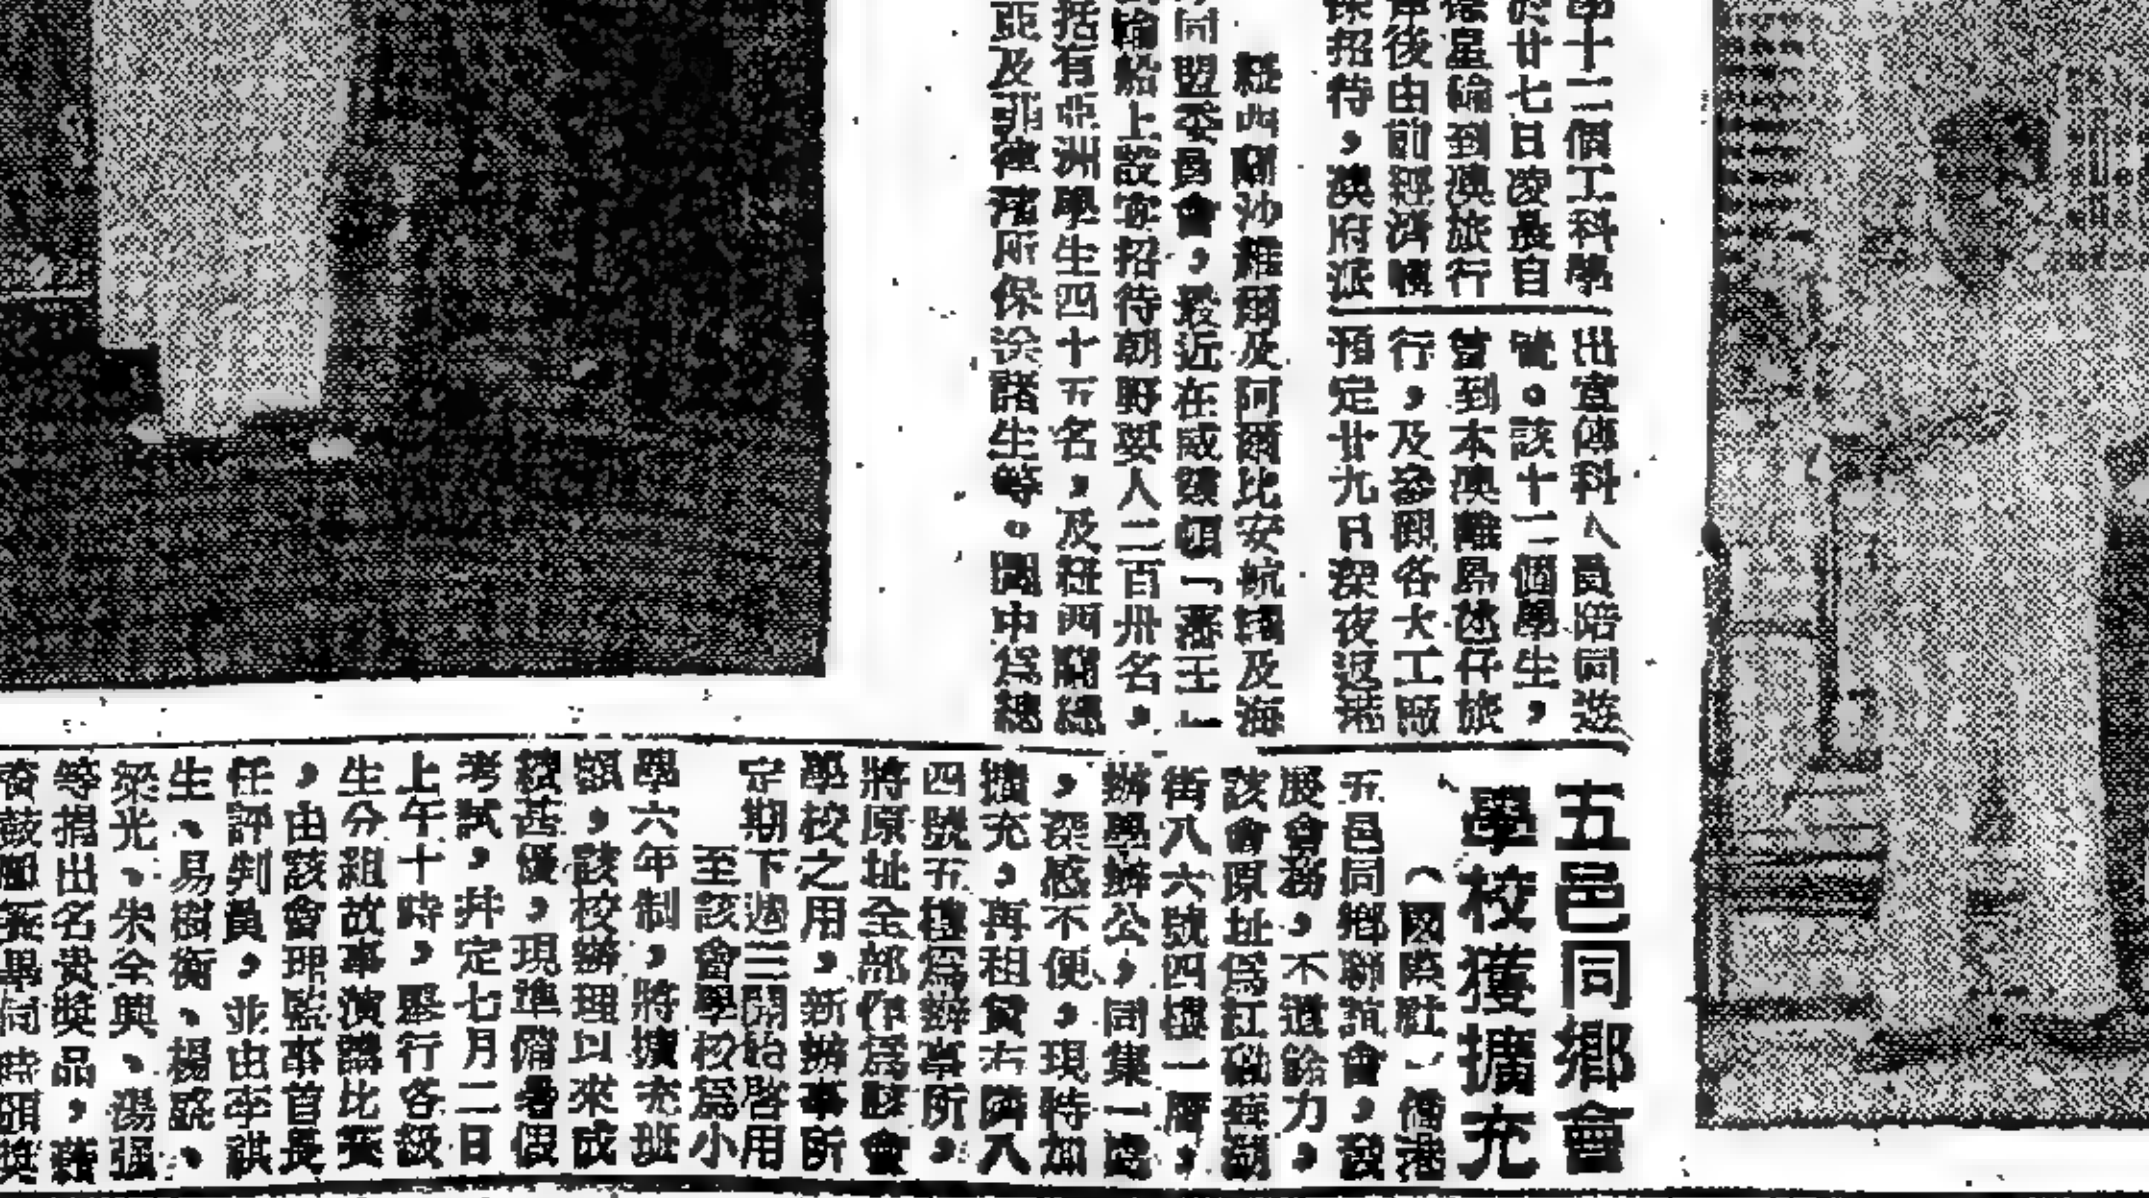 十二個工科學
於廿七日凌晨自
皇輪到澳旅行
後由前經濟
招待，澳府派
出宣傳科人員陪同遊
覽。該十二個學生，
曾到本澳離島氹仔旅
行，及參觀各大工廠
預定廿九日深夜返港
經西蘭沙維爾及阿爾比安航綫及海
同盟委員會，最近在威靈頓「番王」
輪船上設宴招待朝野要人二百卅名，
括有亞洲學生四十五名，及紐西蘭
亞及菲律濱所保送諸生等。圖中爲
五邑同鄉會
學校獲擴充
（國際社）僑港
五邑同鄉聯誼會，發
展會務，不遺餘力，
該會原址爲紅磡蕪湖
街八六號四樓一層，
辦學辦公，同集一處
，深感不便，現特加
擴充，再租賃右隣八
四號五樓爲辦事所，
將原址全部作爲該會
學校之用，新辦事所
定期下週三開始啓用
至該會學校爲小
學六年制，將擴充班
額，該校辦理以來成
績甚優，現準備暑假
考試，幷定七月二日
上午十時，舉行各級
生分組故事演講比賽
，由該會理監事首長
任評判員，並由李祺
生、易樹衡、楊
梁光、朱全興、湯
等捐出名貴獎品，藉